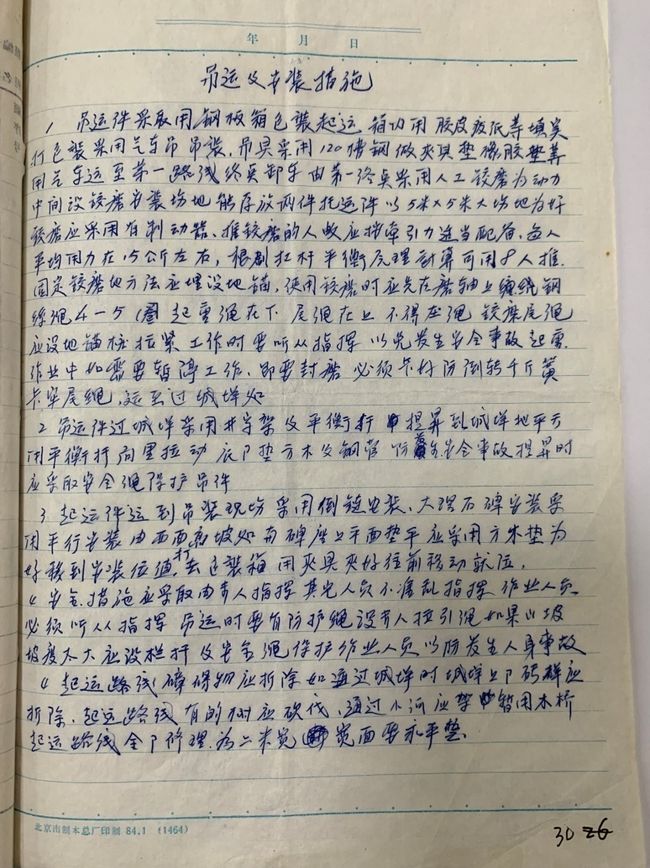 年 月 日
吊运及安装措施
1 吊运件采取用钢板箱包装起运 箱内用胶皮废纸等填实
打包装采用汽车吊吊装,吊具采用120槽钢做夹具垫橡胶垫等
用汽车运至第一路线终点卸车由第一终点采用人工绞磨为动力
中间设绞磨安装场地能存放两件托运件以5米×5米大场地为好
绞磨应采用有制动器、推绞磨的人数应按牵引力适当配备,每人
平均用力在15公斤左右,根剧杠杆平衡原理计算可用8人推.
固定绞磨地方法应埋设地锚,使用绞磨时应先在磨轴上缠绕钢
丝绳4-5圈 起重绳在下 尾绳在上 不得压绳 绞磨尾绳
应设地锚桩拉紧 工作时要听从指挥 以免发生安全事故 起重
作业中如需要暂停工作,即要封磨 必须卡好防倒转千斤簧
卡牢尾绳,运至过城墙处
2 吊运件过城墙采用井字架及平衡杆 提昇到城墙地平方
用平衡杆向里拉动 底下垫方木及钢管 防 安全事故 提昇时
应采取安全绳保护吊件
3 起运件运到吊装现场采用倒链安装、大理石碑安装采
用平行安装由西面高坡处 碑座上平面垫平应采用方木垫为
好移到安装位置,打去包装箱 用夹具夹好往前移动就位,
4 安全措施应采取由专人指挥其它人员不准乱指挥 作业人员
必须听从指挥 吊运时要有防护绳设专人拉引绳如果山坡
坡度太大应设栏杆及安全绳保护作业人员以防发生人身事故
4 起运路线碍碍物应拆除如通过城墙时城墙上下砖 应
折除、起运路线有的树应砍伐、通过小河应架 暂用木桥
起运路线全下修理,为二米宽 宽面要求平垫.
北京市制本总厂印制 84.1 (1464)
30